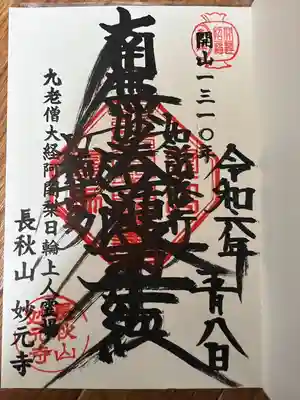 開山一三一〇年
令和六年五月八日
如説修行
南無妙法蓮華経
九老僧大経阿闍梨日輪上人霊
長秋山 妙元寺
長秋山
妙元寺